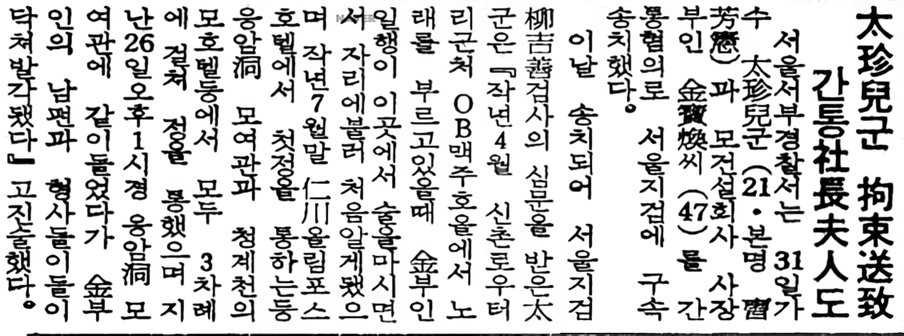 太珍兒군 拘束送致
간통社長夫人도
서울서부경찰서는 31일가
수 太珍兒군(21·본명 曺
芳憲)과 모건설회사 사장
부인 金寶煥씨(47)를 간
통혐의로 서울지검에 구속
송치했다.
이날 송치되어 서울지검
柳吉善검사의 심문을 받은太
군은『작년4월 신촌로우터
리근처 OB맥주호올에서 노
래를 부르고있을때 金부인
일행이 이곳에서 술을마시면
서 자리에불러 처음알게됐으
며 작년7월말 仁川올림포스
호텔에서 첫정을 통하는등
응암洞 모여관과 청계천의
모호텔등에서 모두 3차례
에 걸쳐 정을 통했으며 지
난26일오후1시경 응암洞 모
여관에 같이들었다가 金부
인의 남편과 형사들이들이
닥쳐발각됐다』고진술했다.